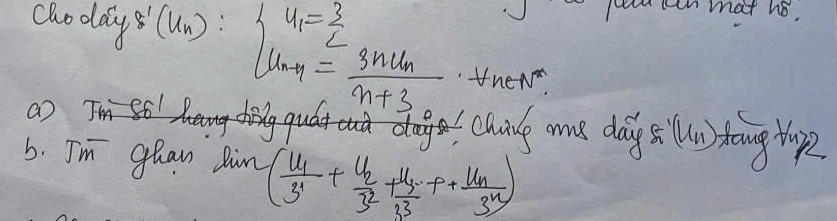 Cho dãy số (Un) : { U₁ = 3/2
Un+1 = 3nUn / n+3 . ∀n∈N*.
a) Tìm số hạng tổng quát của dãy số! Chứng mns dãy số (Un) tăng ∀n≥2
b. Tìm ghạn lim (U₁/3¹ + U₂/3² + U₃/3³ + ... + Un/3ⁿ)